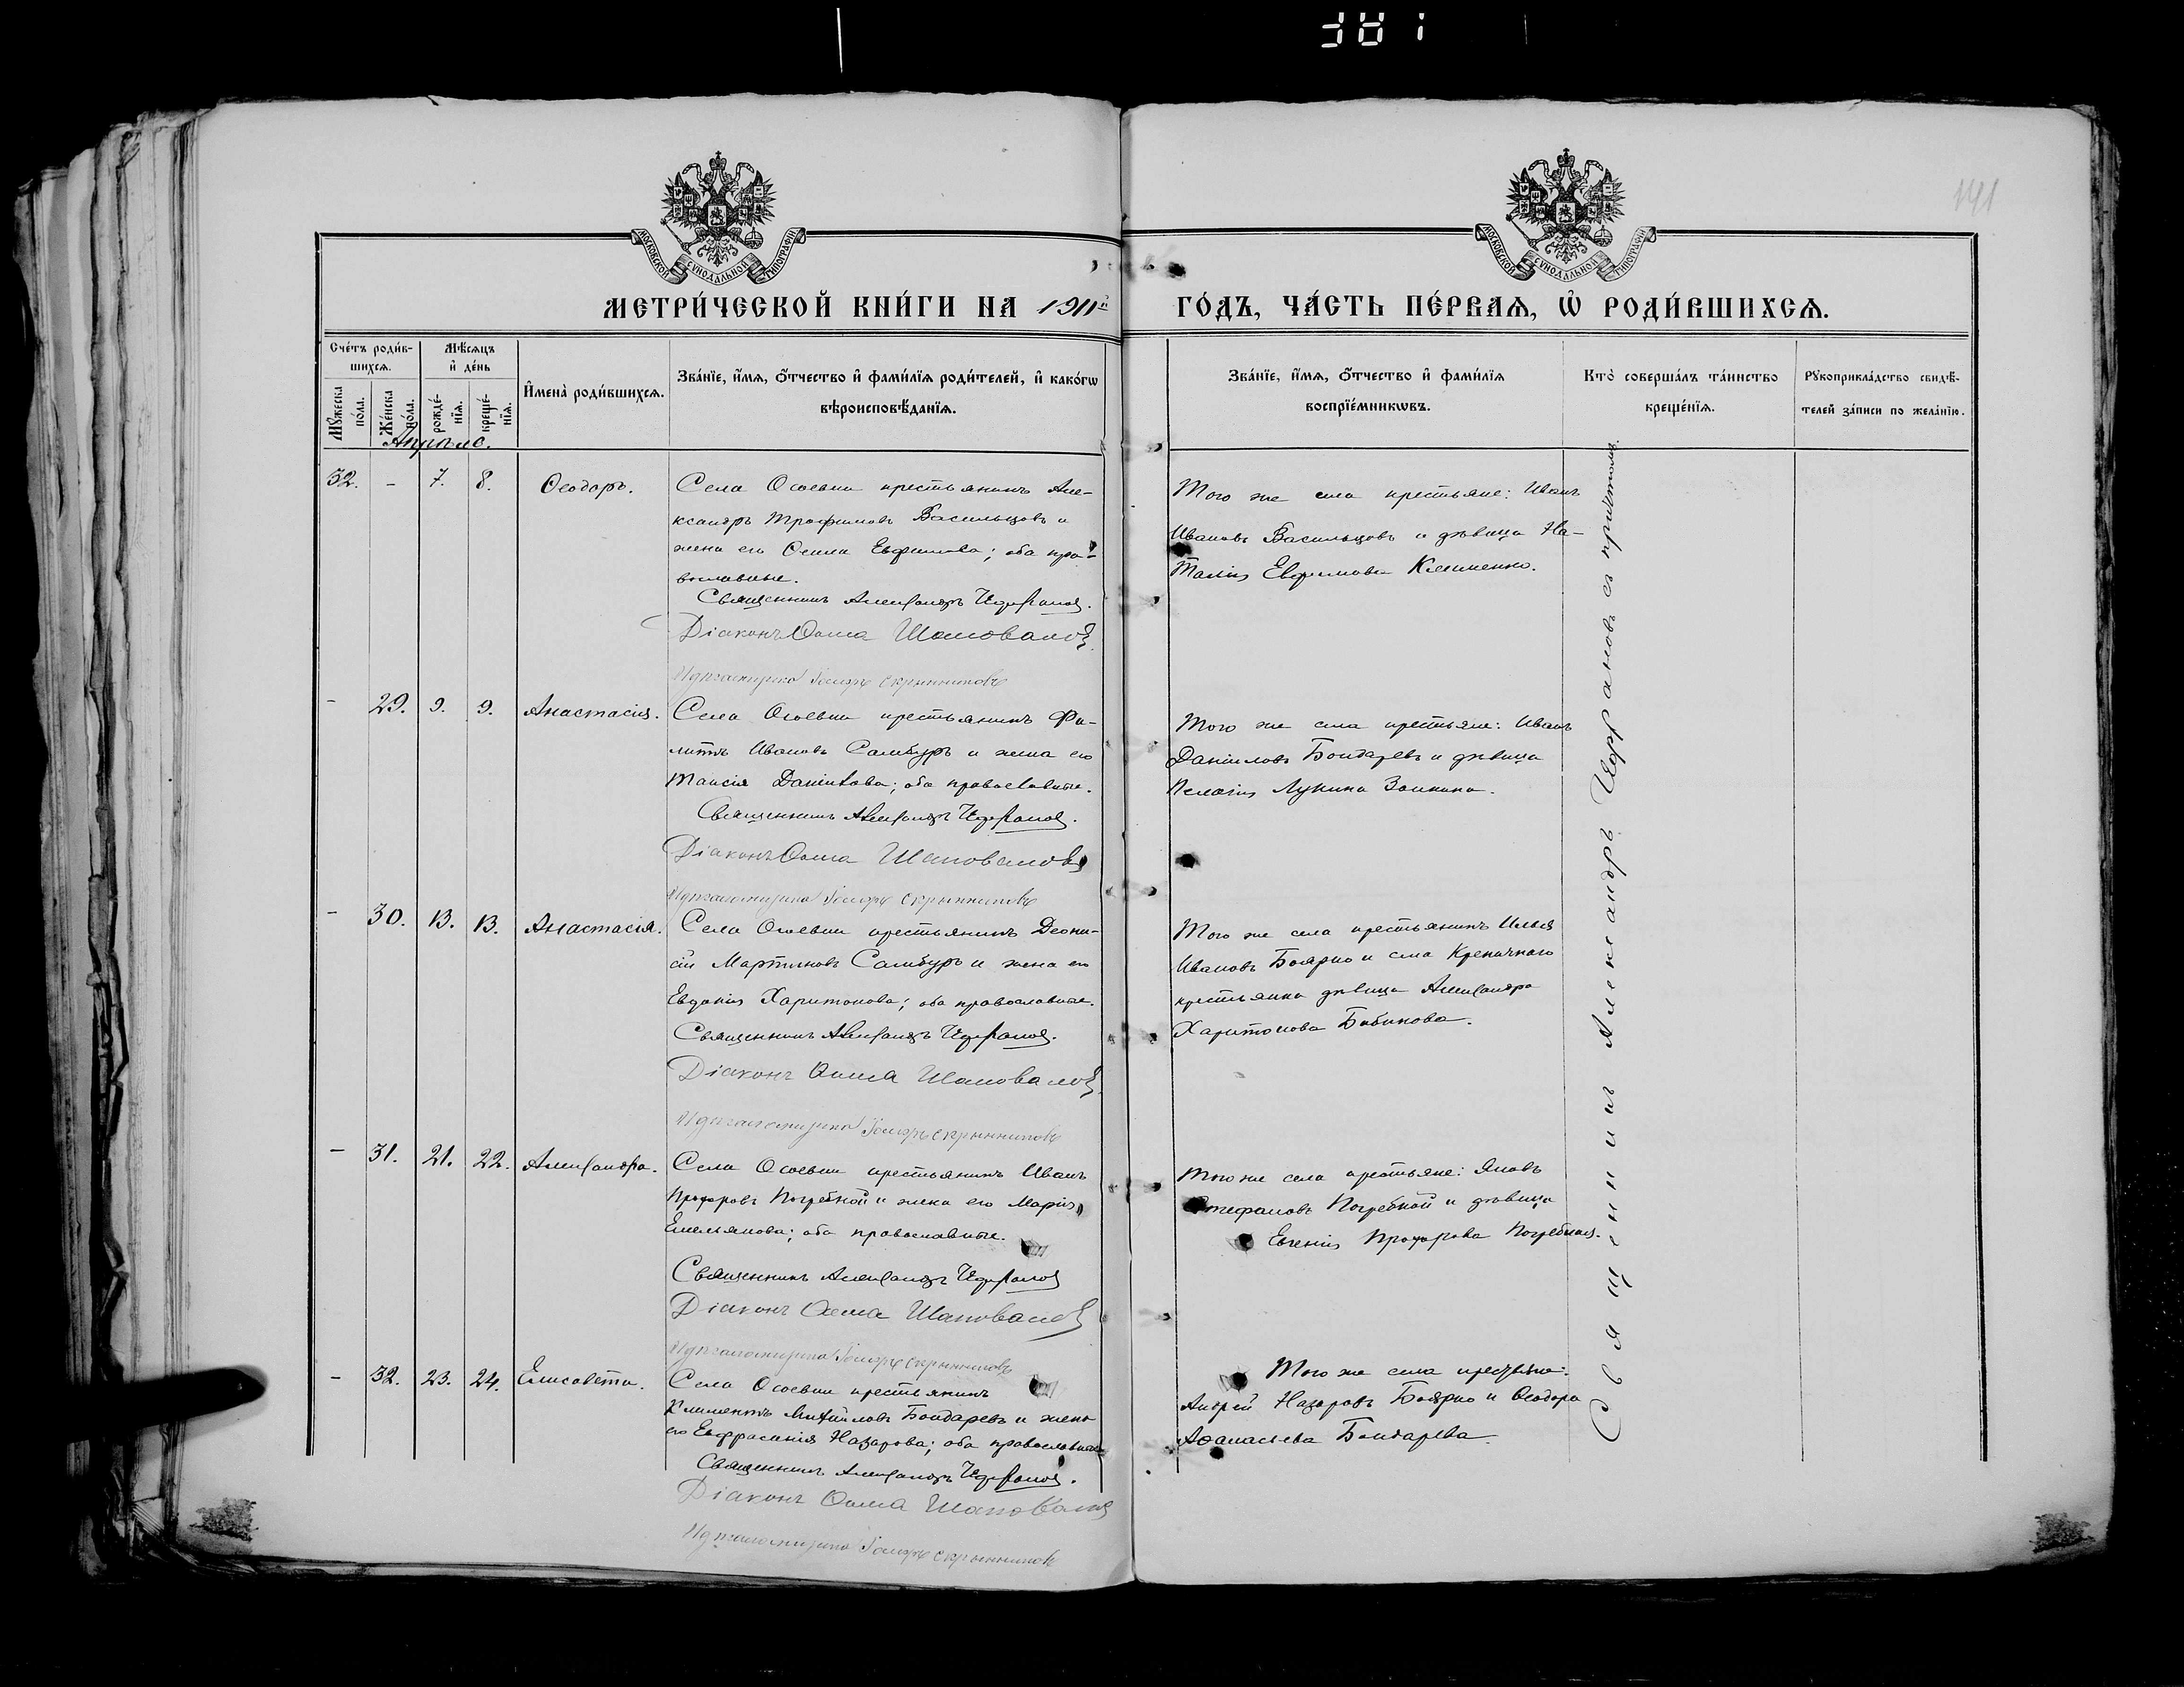 141
МОСКОВСКОЙ СѴНОДАЛЬНОЙ ТИПОГРАФІИ
МОСКОВСКОЙ СѴНОДАЛЬНОЙ ТИПОГРАФІИ
МЕТРИ́ЧЕСКОЙ КНИ́ГИ НА 1911й ГО́ДЪ, ЧА́СТЬ ПЕ́РВАѦ, Ѡ РОДИ́ВШИХСѦ.
Сче́тъ роди́в-
шихсѧ.
Мꙋ́жеска по́ла.
Же́нска по́ла.
Мѣ́сѧцъ
и҆ де́нь
рожде́-
нїѧ.
креще́-
нїѧ.
И҆мена̀ роди́вшихсѧ.
Зва́нїе, и҆́мѧ, ѻ҆́тчество и҆ фами́лїѧ роди́телей, и҆ како́гѡ
вѣроисповѣ́данїѧ.
Зва́нїе, и҆́мѧ, ѻ҆́тчество и҆ фами́лїѧ
воспрїе́мникѡвъ.
Кто̀ соверша́лъ та́инство
креще́нїѧ.
Рꙋкоприкла́дство свидѣ́-
телей за́писи по жела́нїю.
Апрѣль.
32. - 7. 8. Ѳеодоръ.
Села Осоевки крестьянинъ Але-
ксандръ Трофимовъ Васильцовъ и
жена его Евфимова; оба пра-
вославные.
Священникъ Александръ
Діаконъ Ѳома Шаповаловъ
Скрынниковъ
Того же села крестьяне: Иванъ
Ивановъ Васильцовъ и дѣвица На-
талія Евфимова Клименко.
- 29. 9. 9. Анастасія.
Села Осоевки крестьянинъ Фи-
липпъ Ивановъ Самбуръ и жена его
Таисія Даніилова; оба православные.
Священникъ Александръ
Діаконъ Ѳома Шаповаловъ
Скрынниковъ
Того же села крестьяне: Иванъ
Даніиловъ Бондаревъ и дѣвица
Пелагія Лукина Заикина.
- 30. 13. 13. Анастасія.
Села Осоевки крестьянинъ Діони-
сій Мартиновъ Самбуръ и жена его
Евдокія Харитонова; оба православные.
Священникъ Александръ
Діаконъ Ѳома Шаповаловъ
Скрынниковъ
Того же села крестьянинъ Илья
Ивановъ Боярко и села Кремяннаго
крестьянка дѣвица Александра
Харитонова Бабикова.
- 31. 21. 22. Александра.
Села Осоевки крестьянинъ Иванъ
Прохоровъ Погребной и жена его Марія
Емельянова; оба православные.
Священникъ Александръ
Діаконъ Ѳома Шаповаловъ
Скрынниковъ
Того же села крестьяне: Яковъ
Стефановъ Погребной и дѣвица
Евгенія Прохорова Погребная.
- 32. 23. 24. Елисавета.
Села Осоевки крестьянинъ
Климентъ Михаиловъ Бондаревъ и жена
его Евфросинія Назарова; оба православные
Священникъ Александръ
Діаконъ Ѳома Шаповаловъ
Скрынниковъ
Того же села крестьяне:
Андрей Назаровъ Боярко и Ѳеодора
Аѳанасьева Бондарева.
Священникъ Александръ съ причтомъ.